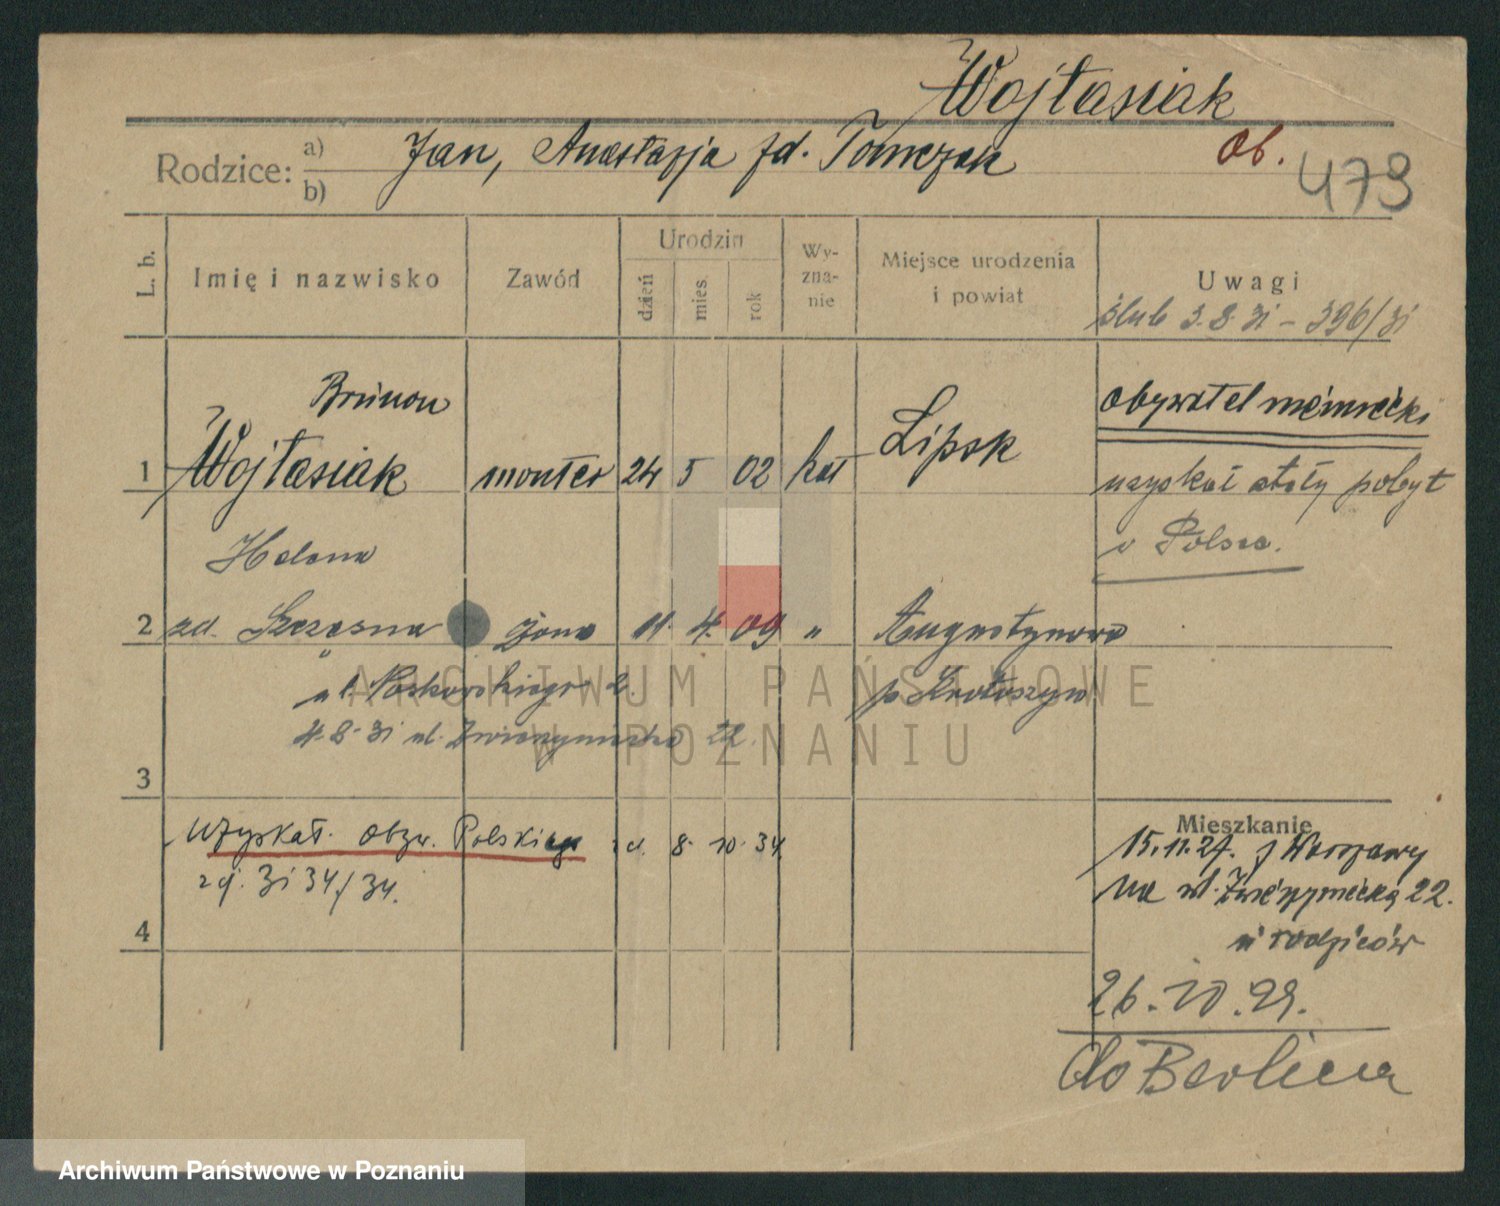 Wojtasiak
Rodzice: a) b) Jan, Anastazja zd. Tomczak Ob. 479
L. b. Imię i nazwisko Zawód Urodzin dzień mies. rok Wy-zna-nie Miejsce urodzenia i powiat Uwagi
ślub 3.8.31 – 396/31
Brunon
1 Wojtasiak monter 24 5 02 kat Lipsk
obywatel niemiecki
uzyskał stały pobyt
w Polsce.
Helena
2 zd. Szczesna żona 11. 4. 09 " Augustynowo
p Krotoszyn
ul. 2.
4.8.31 ul. Zwierzyniecka 22.
3
Uzyskał obyw. Polskiego zd. 8. 10. 34
31 34/34.
4
Mieszkanie
15.11.27. z Warszawy
na ul. Zwierzyniecką 22.
u rodziców
26.10.29.
do Berlina
ARCHIWUM PAŃSTWOWE
W POZNANIU
Archiwum Państwowe w Poznaniu